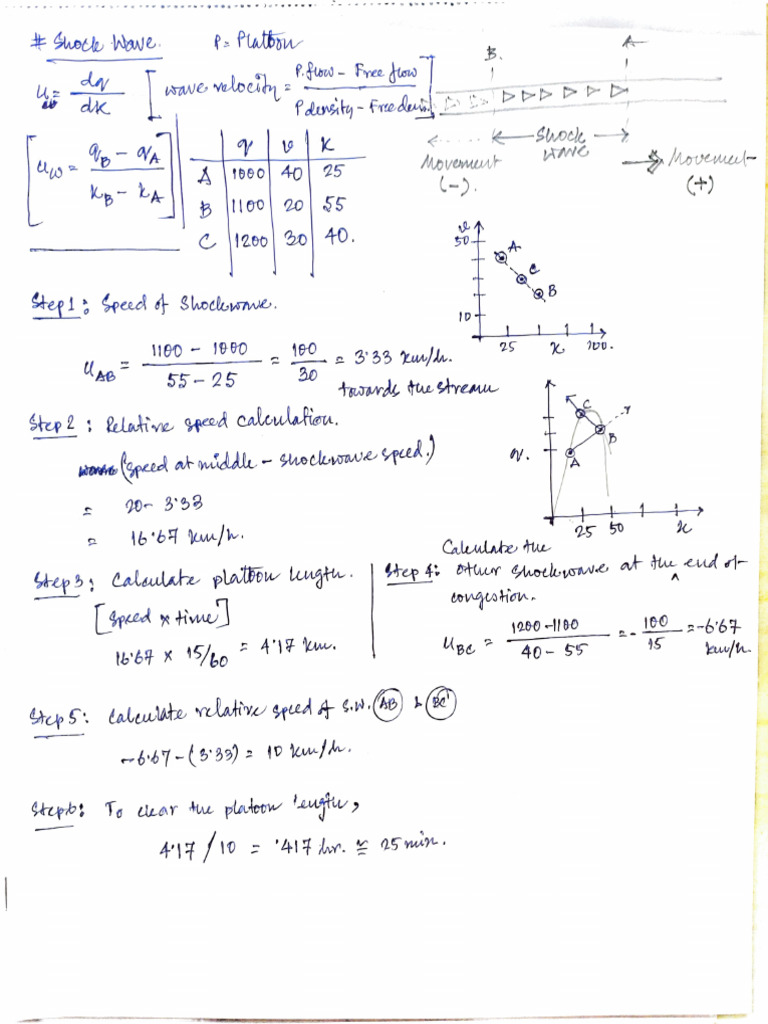 # Shock Wave. P = Platoon
u = dq/dK [wave velocity = P.flow - Free flow / P density - Free den
B. A
Shock wave
Movement (-).
Movement (+)
[uw = qB - qA / kB - kA]
q v k
A 1000 40 25
B 1100 20 55
C 1200 30 40.
v
50
A
C
B
10
25 k 100.
Step 1: Speed of Shockwave.
uAB = 1100 - 1000 / 55 - 25 = 100 / 30 = 3.33 km/h.
towards the stream
Step 2: Relative speed calculation.
(speed at middle - shockwave speed.)
= 20 - 3.33
= 16.67 km/h.
C
B
A
q.
25 50 k
Step 3: Calculate platoon length.
[speed x time]
16.67 x 15/60 = 4.17 km.
Step 4: Calculate the other shockwave at the end of
congestion.
uBC = 1200 - 1100 / 40 - 55 = - 100 / 15 = -6.67 km/h.
Step 5: Calculate relative speed of S.W. AB & BC
-6.67 - (3.33) = 10 km/h.
Step 6: To clear the platoon length,
4.17 / 10 = .417 hr. ≅ 25 min.